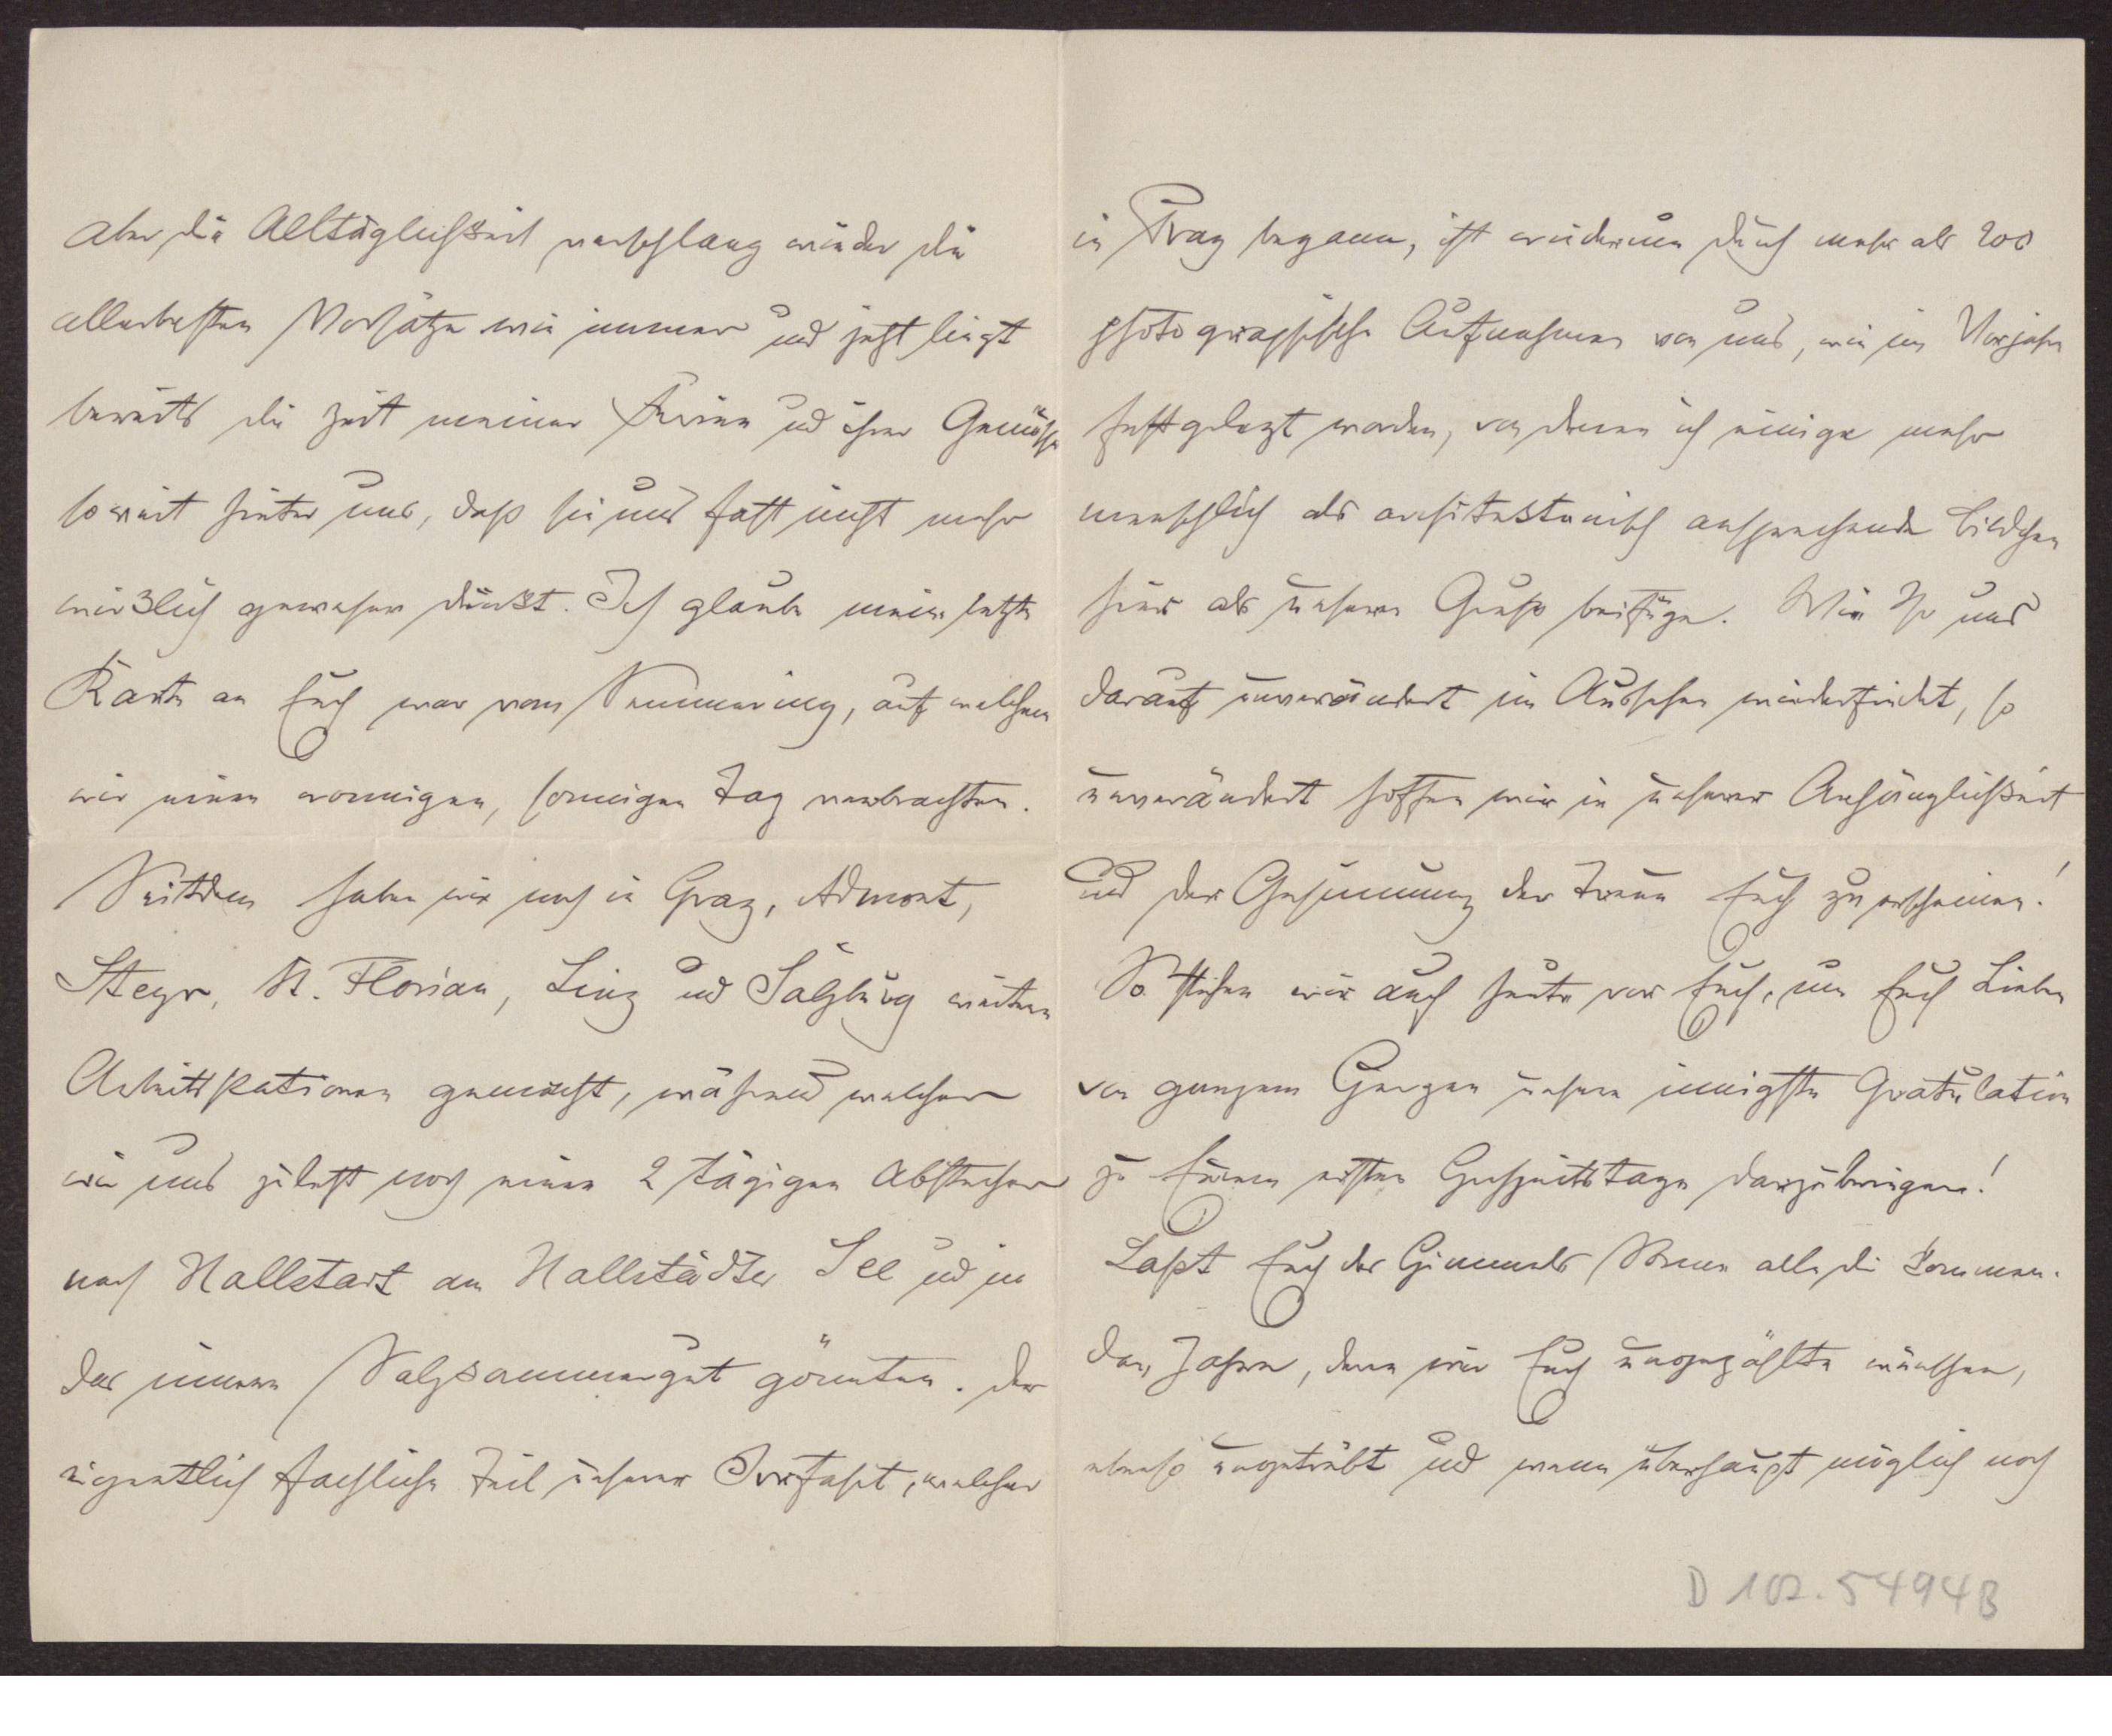 aber die Alltäglichkeit verschlang wieder die
allerbesten Vorsätze wie immer und jetzt liegt
bereits die Zeit meiner Ferien und ihrer Genüsse
so weit hinter uns, daß sie uns fast nicht mehr
wirklich gewesen dünkt. Ich glaube meine letzte
Karte an Euch war vom Semmering, auf welchem
wir einen wonnigen, sonnigen Tag verbrachten.
Seitdem haben wir noch in Graz, Admont,
Steyr, St. Florian, Linz und Salzburg weitere
Arbeitsstationen gemacht, während welcher
wir uns zuletzt noch einen 2 tägigen Abstecher
nach Hallstatt am Hallstädter See und in
das innere Salzkammergut gönnten. Der
eigentlich fachliche Teil unserer Irrfahrt, welcher
in Prag begann, ist wiederum durch mehr als 200
photographische Aufnahmen von uns, wie im Vorjahre
festgelegt worden, von denen ich einige mehr
menschlich als architektonisch ansprechende Bildchen
hier als unseren Gruß beifüge. Wie Ihr uns
darauf unverändert im Aussehen wiederfindet, so
unverändert hoffen wir in unserer Anhänglichkeit
und der Gesinnung der Treue Euch zu erscheinen!
So stehen wir auch heute vor Euch, um Euch Lieben
von ganzem Herzen unsere innigste Gratulation
zu Eurem ersten Hochzeitstage darzubringen!
Laßt Euch des Himmels Sonne alle die kommen-
den Jahre, deren wir Euch ungezählte wünschen,
ebenso ungetrübt und wenn überhaupt möglich noch
D 102.5494B